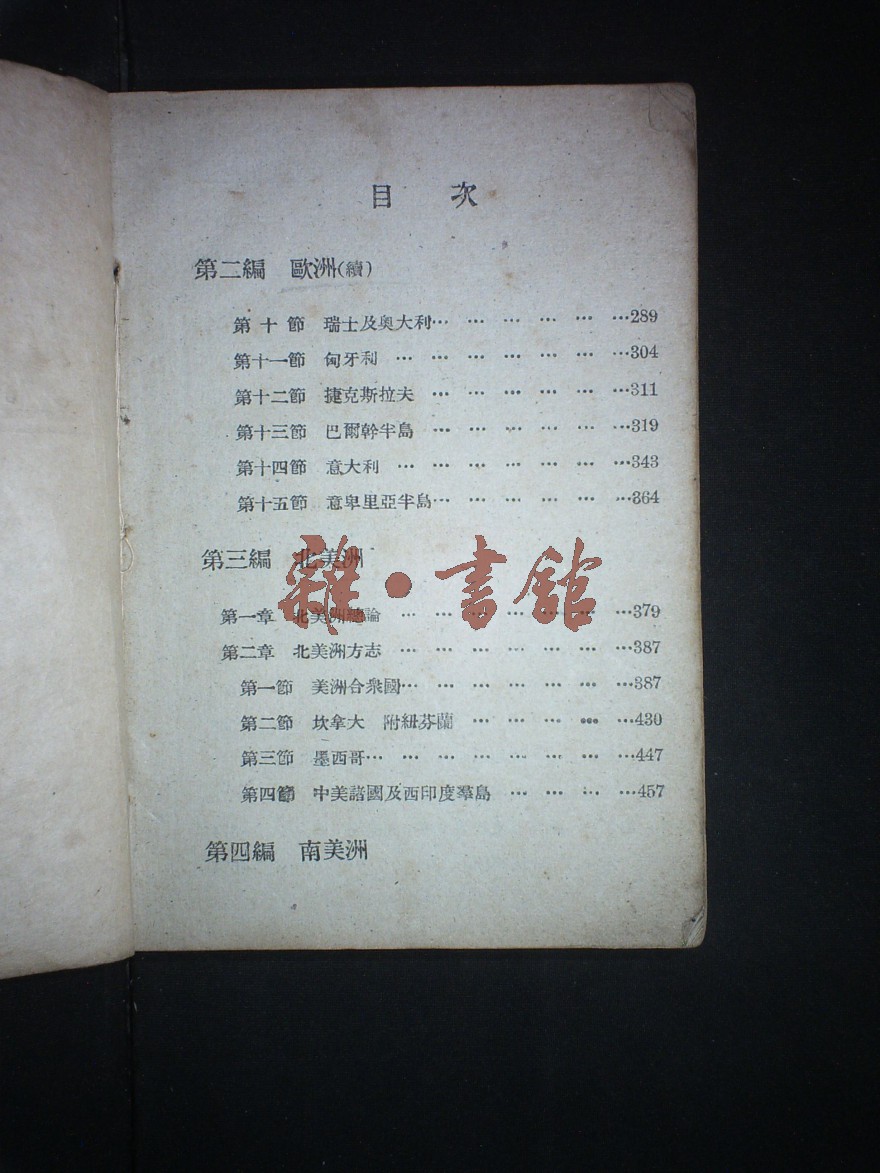 目 次
第二編 歐洲(續)
第十節 瑞士及奧大利… … … … … …289
第十一節 匈牙利 … … … … … … …304
第十二節 捷克斯拉夫 … … … … … …311
第十三節 巴爾幹半島 … … … … … …319
第十四節 意大利 … … … … … … …343
第十五節 意卑里亞半島… … … … … …364
第三編 北美洲
雜·書館
第一章 北美洲總論 … … … … … … …379
第二章 北美洲方志 … … … … … … …387
第一節 美洲合衆國… … … … … … …387
第二節 坎拿大 附紐芬蘭 … … … … …430
第三節 墨西哥… … … … … … … …447
第四節 中美諸國及西印度羣島 … … … …457
第四編 南美洲